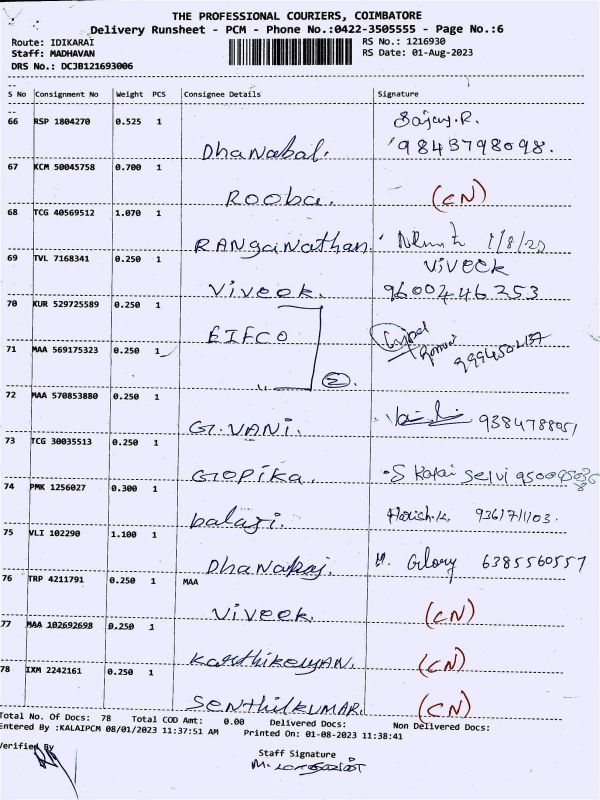 THE PROFESSIONAL COURIERS, COIMBATORE
Delivery Runsheet - PCM - Phone No.:0422-3505555 - Page No.:6
Route: IDIKARAI RS No.: 1216930
Staff: MADHAVAN RS Date: 01-Aug-2023
DRS No.: DCJB121693006
S No Consignment No Weight PCS Consignee Details Signature
66 RSP 1804270 0.525 1 Sajay.R.
Dhanabal. 9843798098.
67 KCM 50045758 0.700 1
Rooba. (CN)
68 TCG 40569512 1.070 1
RANgaNathan. 1/8/23
69 TVL 7168341 0.250 1 ViVEEK
Viveek. 9600446253
70 KUR 529725589 0.250 1
EIFCO
71 MAA 569175323 0.250 1
,, 2
72 MAA 570853880 0.250 1
G.VANI. 9384788051
73 TCG 30035513 0.250 1
GOPika. S Kalai Selvi
74 PMK 1256027 0.300 1
balaji. Harish.K.
75 VLI 102290 1.100 1
Dhanaraj. M. Glory 6385560557
76 TRP 4211791 0.250 1 MAA
Viveek. (CN)
77 MAA 102692698 0.250 1
Karthikeyan. (CN)
78 IXM 2242161 0.250 1
SENthilKUMAR. (CN)
Total No. Of Docs: 78 Total COD Amt: 0.00 Delivered Docs: Non Delivered Docs:
Entered By :KALAIPCM 08/01/2023 11:37:51 AM Printed On: 01-08-2023 11:38:41
Verified By Staff Signature